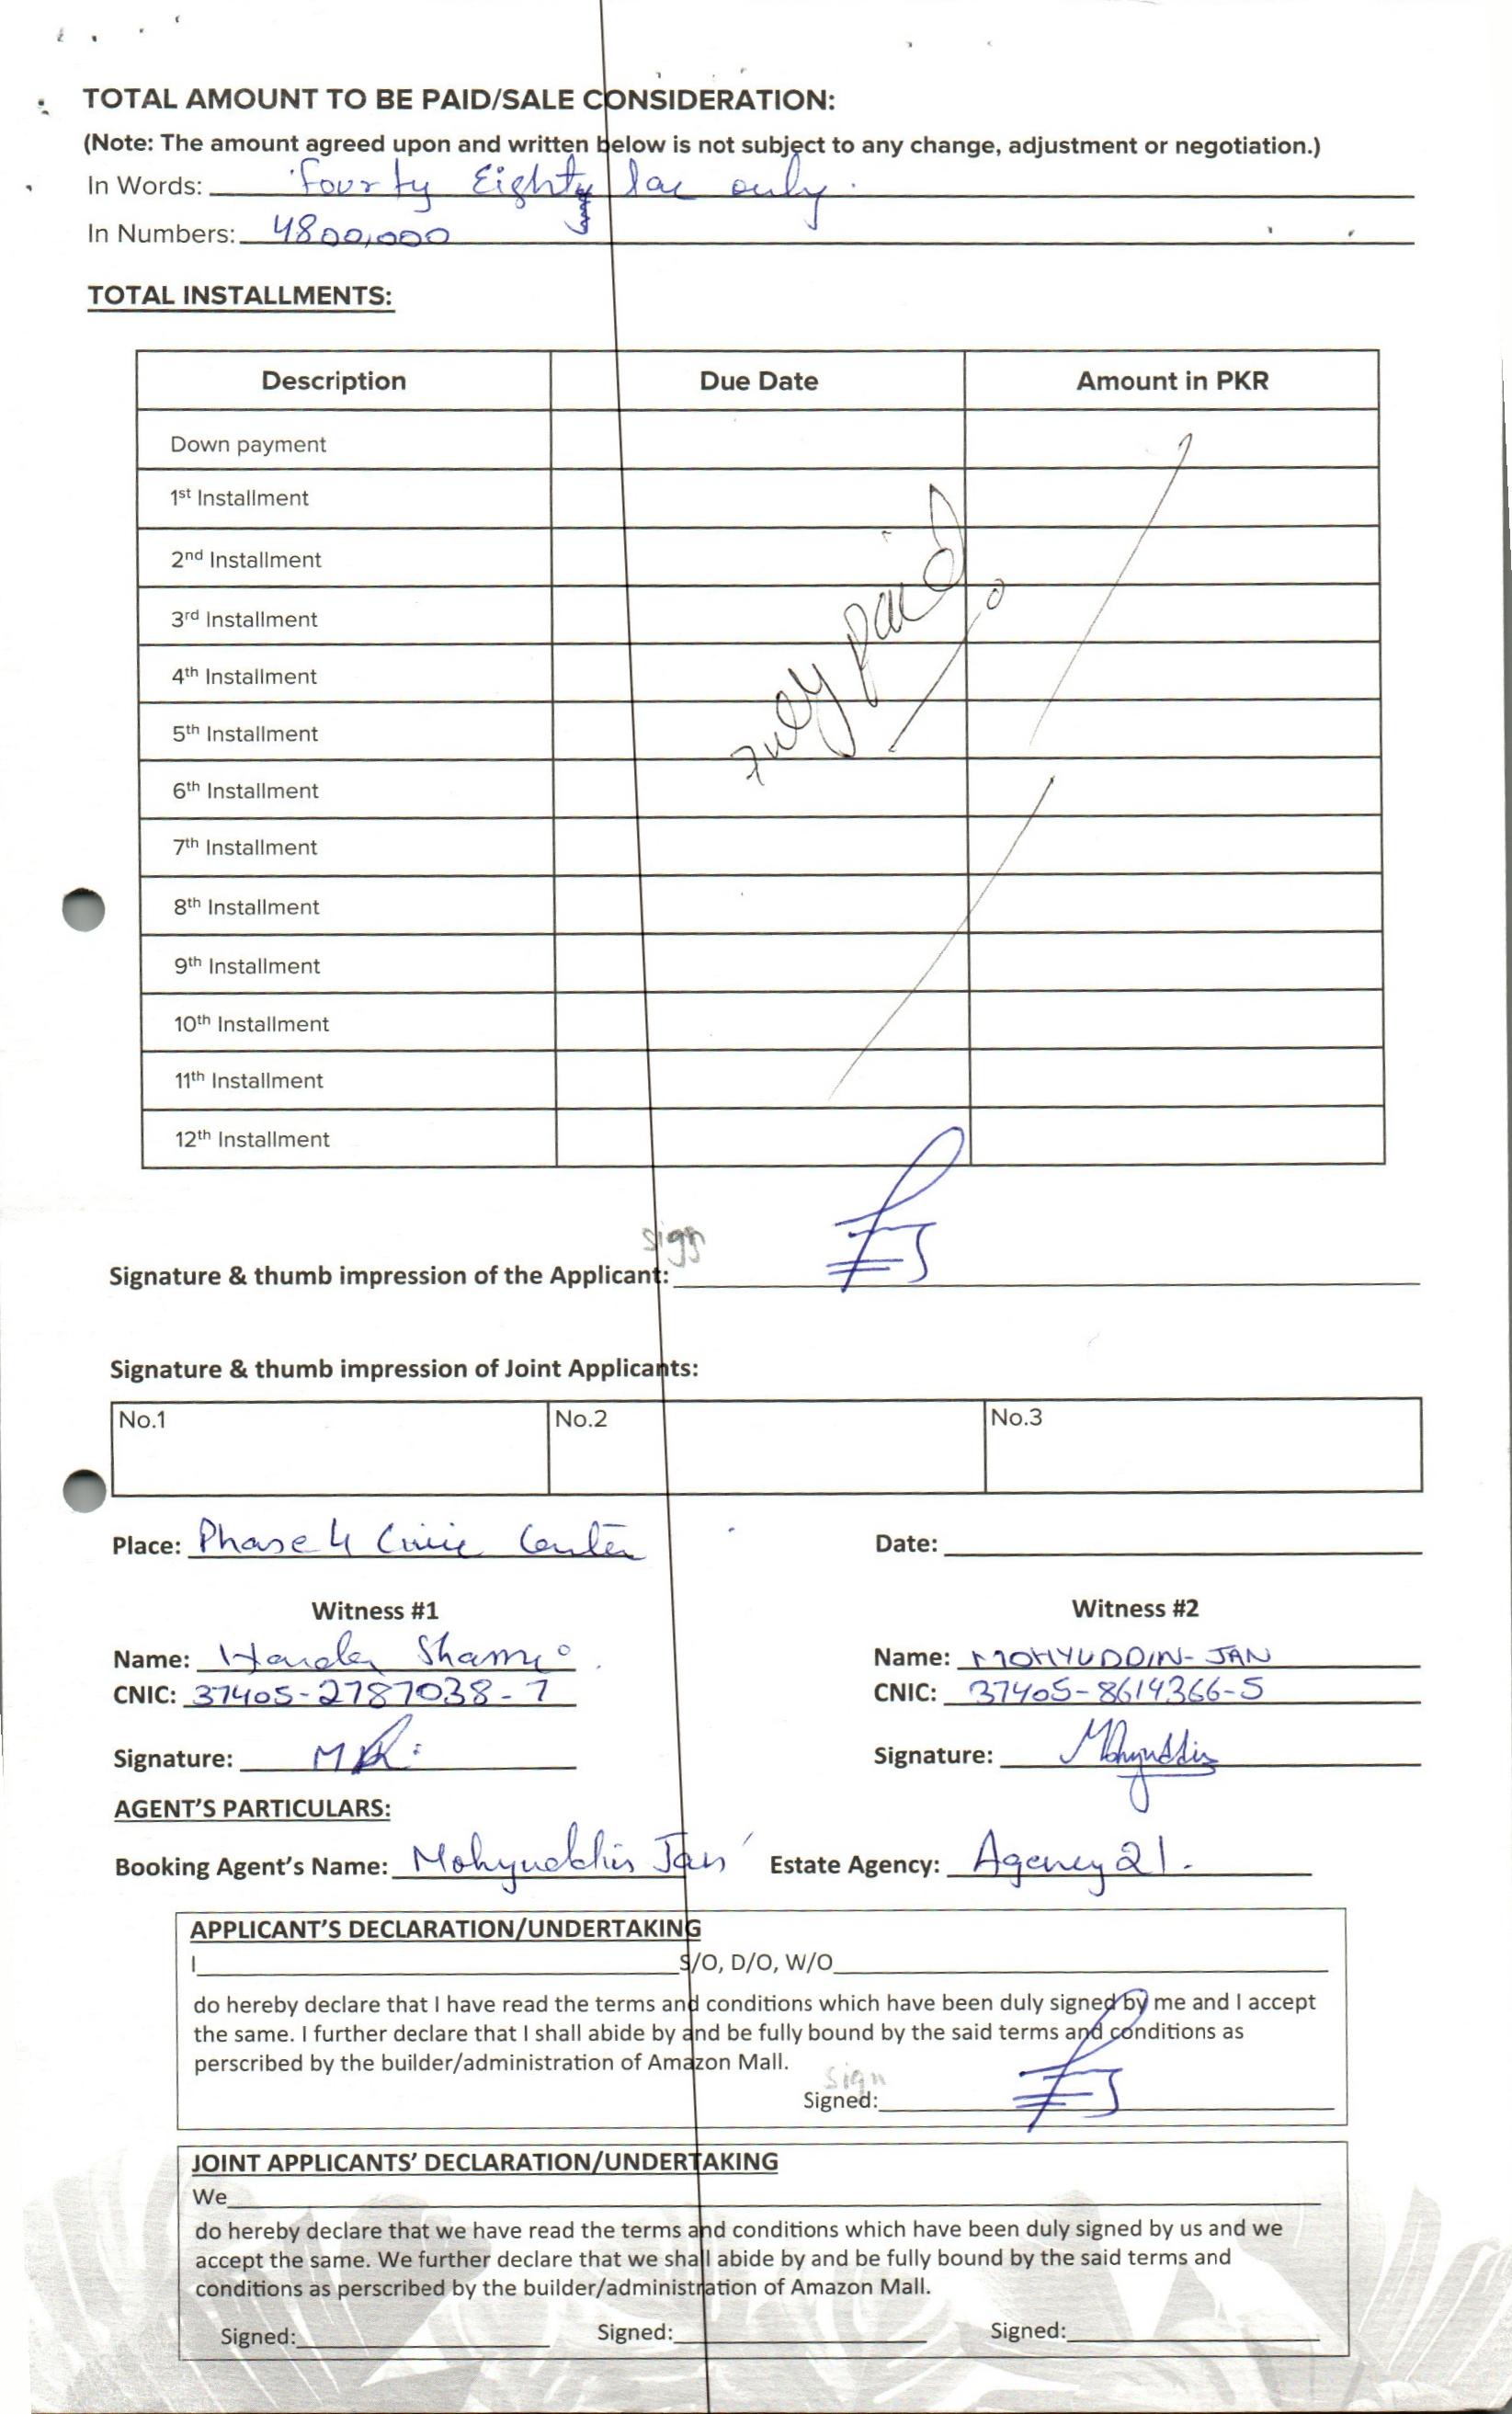 TOTAL AMOUNT TO BE PAID/SALE CONSIDERATION:
(Note: The amount agreed upon and written below is not subject to any change, adjustment or negotiation.)
In Words: Fourty Eighty lac only.
In Numbers: 4800,000
TOTAL INSTALLMENTS:
Description Due Date Amount in PKR
Down payment
1st Installment
2nd Installment
3rd Installment
4th Installment
5th Installment
6th Installment
7th Installment
8th Installment
9th Installment
10th Installment
11th Installment
12th Installment
paid
sign
Signature & thumb impression of the Applicant:
Signature & thumb impression of Joint Applicants:
No.1 No.2 No.3
Place: Phase 4 Civic Center Date:
Witness #1 Witness #2
Name: Name: MOHYUDDIN-JAN
CNIC: 37405-2787038-7 CNIC: 37405-8614366-5
Signature: Signature: Mohyuddin
AGENT'S PARTICULARS:
Booking Agent's Name: Mohyuddin Jan Estate Agency: Agency 21.
APPLICANT'S DECLARATION/UNDERTAKING
I S/O, D/O, W/O
do hereby declare that I have read the terms and conditions which have been duly signed by me and I accept
the same. I further declare that I shall abide by and be fully bound by the said terms and conditions as
perscribed by the builder/administration of Amazon Mall.
sign
Signed:
JOINT APPLICANTS' DECLARATION/UNDERTAKING
We
do hereby declare that we have read the terms and conditions which have been duly signed by us and we
accept the same. We further declare that we shall abide by and be fully bound by the said terms and
conditions as perscribed by the builder/administration of Amazon Mall.
Signed: Signed: Signed: